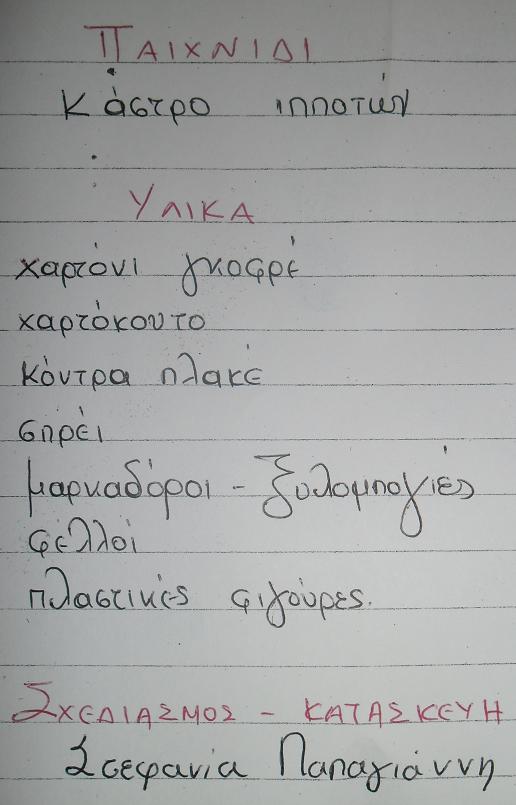 ΠΑΙΧΝΙΔΙ
Κάστρο ιπποτών
ΥΛΙΚΑ
χαρτόνι γκοφρέ
χαρτόκουτο
κόντρα πλακέ
σπρέι
μαρκαδόροι - ξυλομπογιές
φέλλοί
πλαστικές φιγούρες.
ΣΧΕΔΙΑΣΜΟΣ - ΚΑΤΑΣΚΕΥΗ
Στεφανία Παπαγιάννη